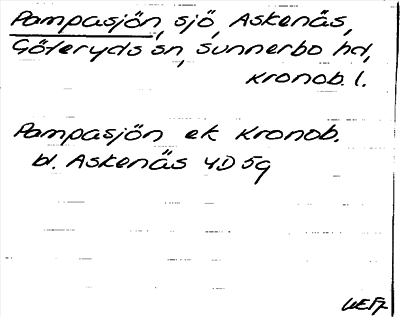 Pampasjön, sjö, Askenäs,
Göteryds sn, Sunnerbo hd,
Kronob. l.
Pampasjön ek Kronob.
bl. Askenäs 4D5g